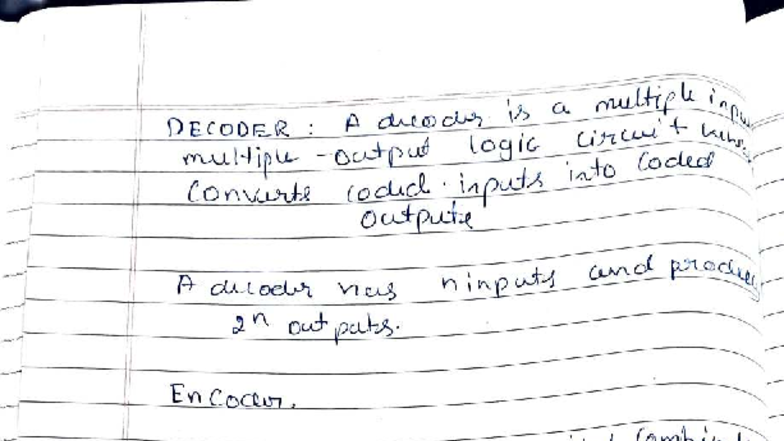 DECODER : A decoder is a multiple input
multiple-output logic circuit
Converts coded inputs into Coded
outputs
A decoder has n inputs and produces
2n outputs.
Encoder.